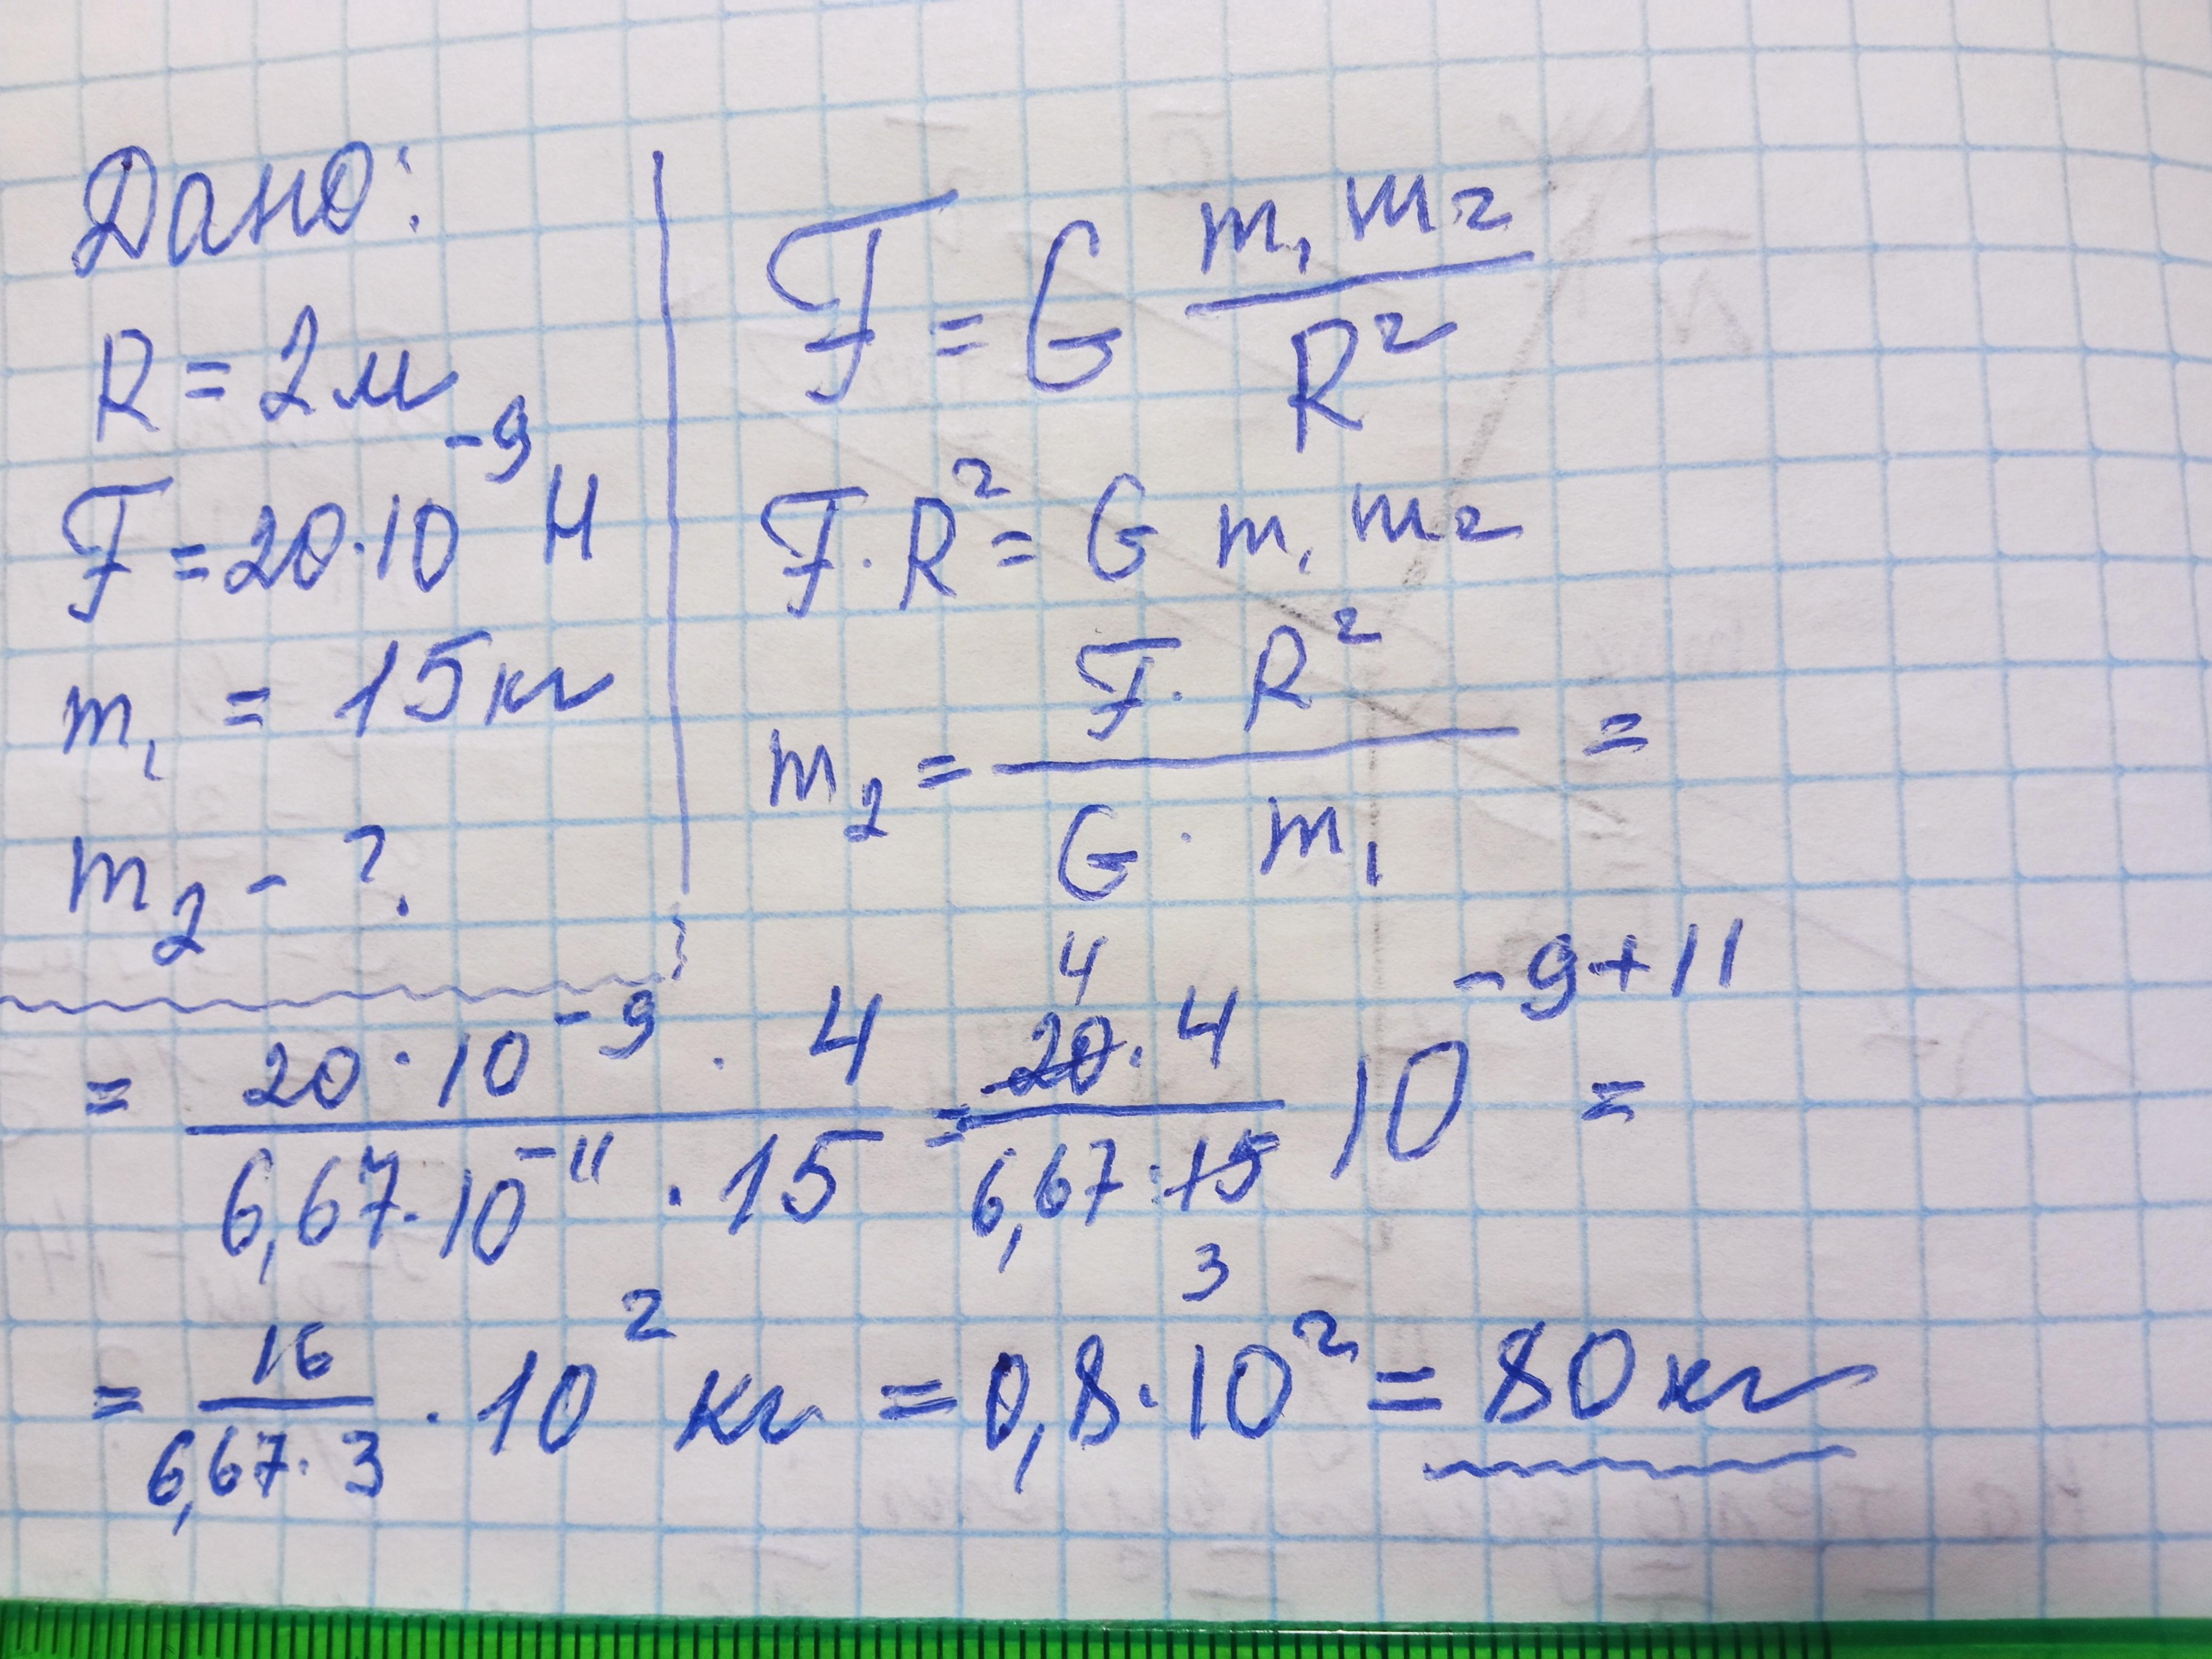 Дано:
R = 2м
F = 20·10⁻⁹ Н
m₁ = 15кг
m₂ - ?
F = G m₁ m₂ / R²
F·R² = G m₁ m₂
m₂ = F·R² / G·m₁ =
= 20·10⁻⁹·4 / 6,67·10⁻¹¹·15 = 20·4 / 6,67·15 10⁻⁹⁺¹¹ =
4
3
= 16 / 6,67·3 · 10² кг = 0,8·10² = 80 кг